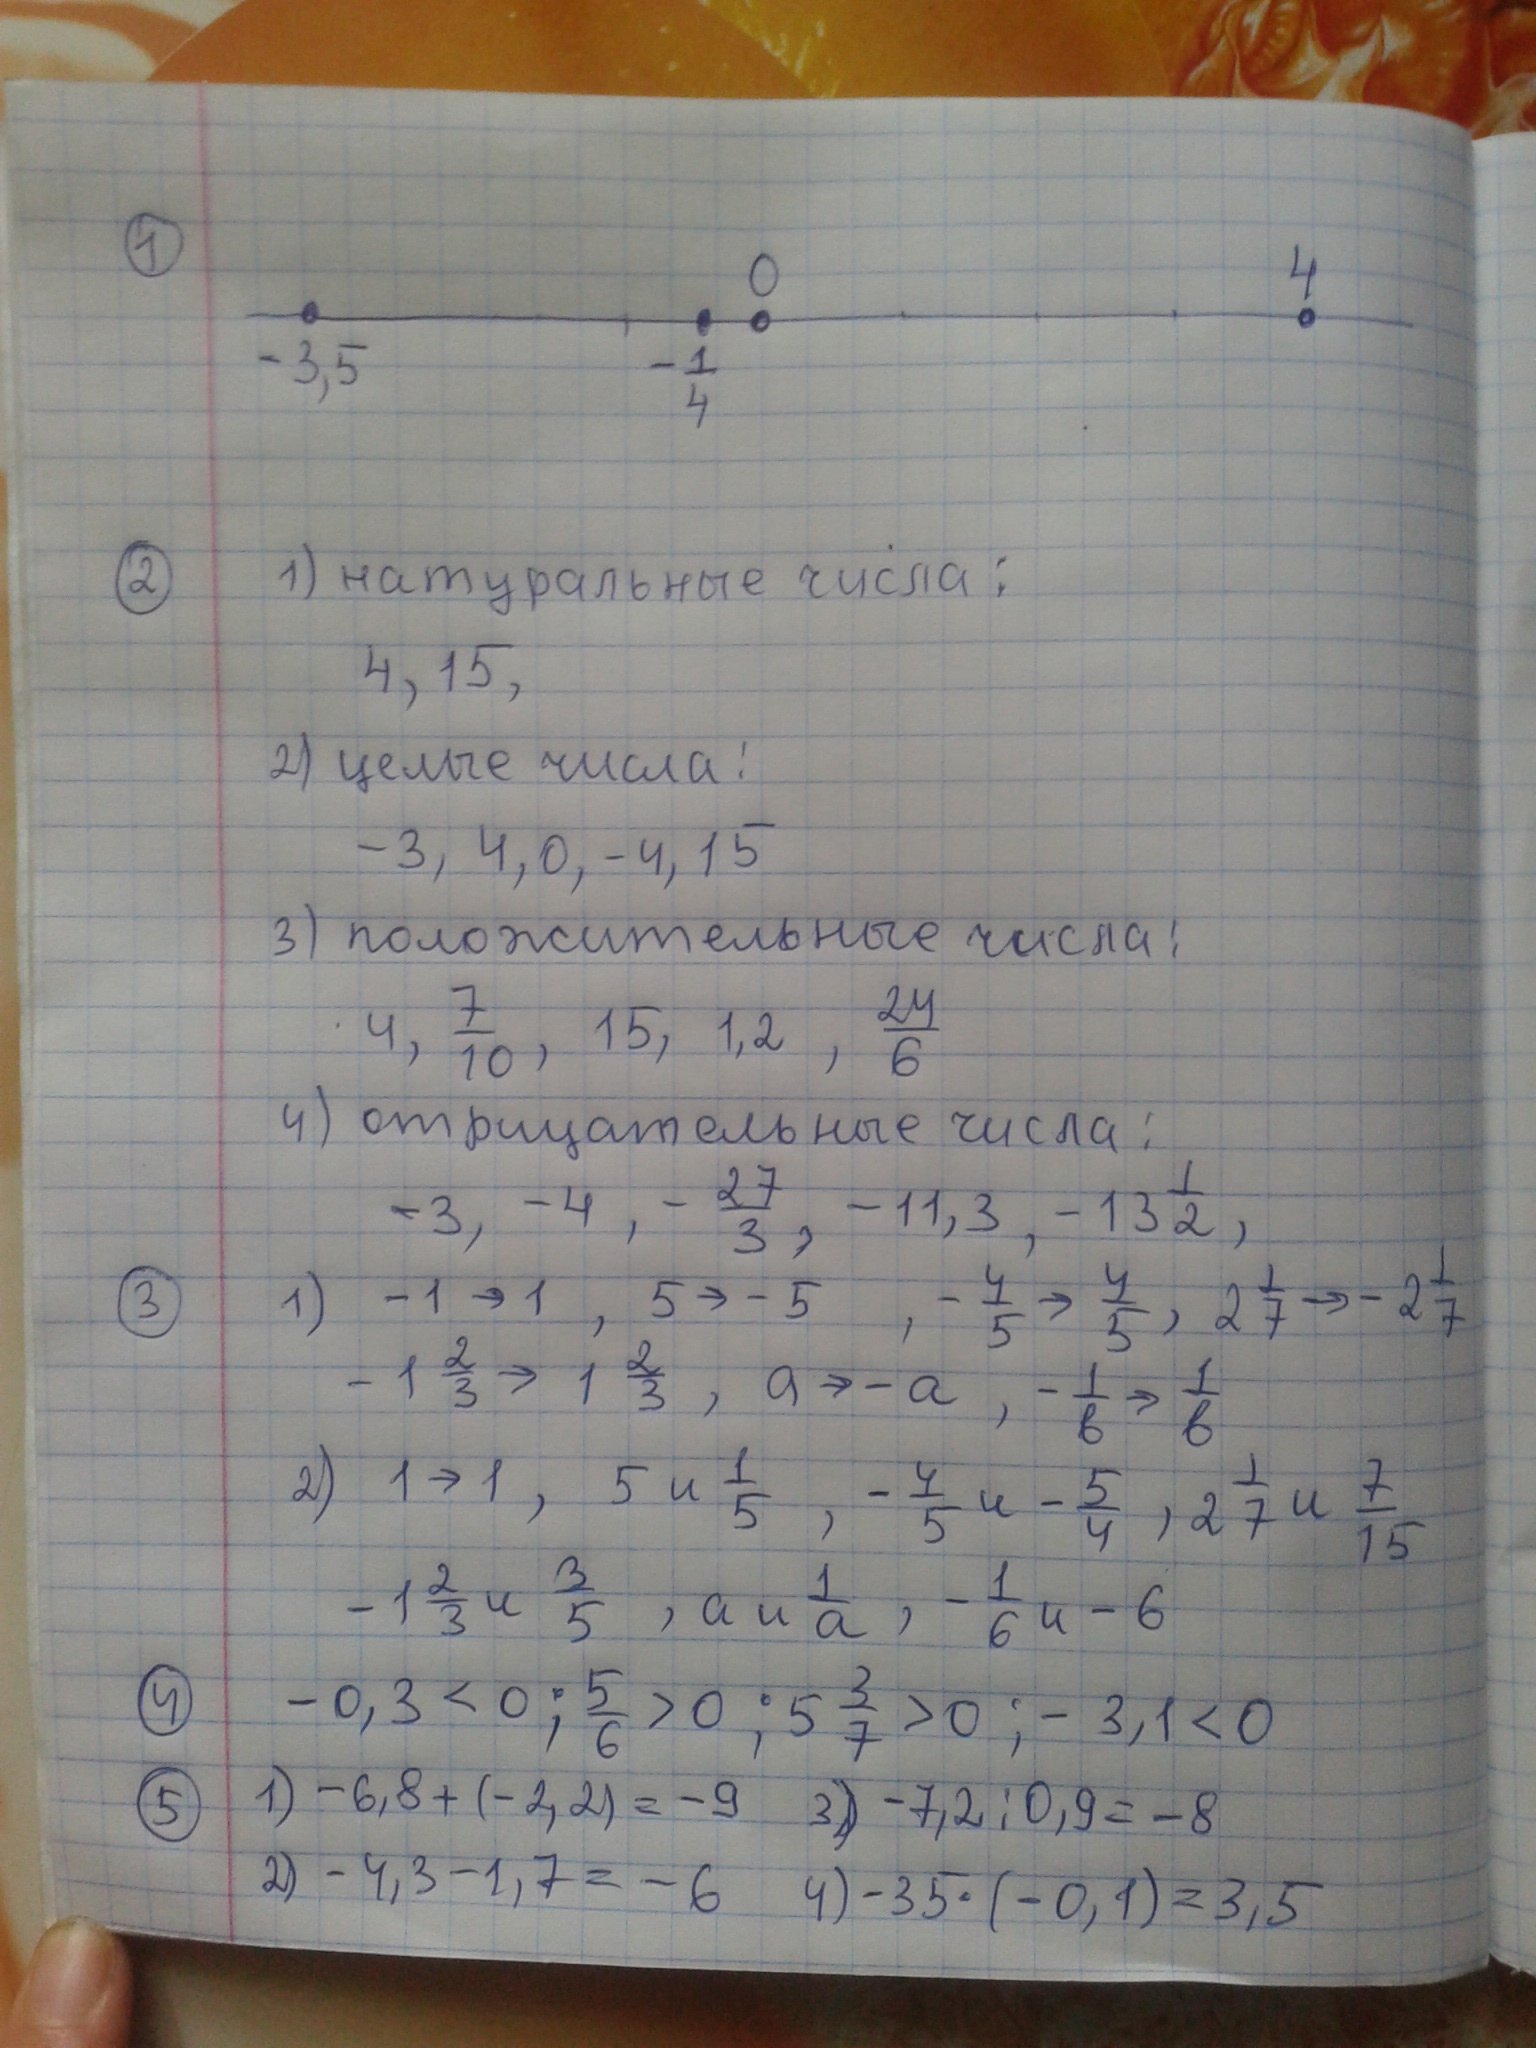 1
0 4
-3,5 -1/4
2 1) натуральные числа:
4, 15,
2) целые числа:
-3, 4, 0, -4, 15
3) положительные числа:
4, 7/10, 15, 1,2, 24/6
4) отрицательные числа:
-3, -4, -27/3, -11,3, -13 1/2,
3 1) -1→1, 5→-5, -4/5→4/5, 2 1/7→-2 1/7
-1 2/3→1 2/3, a→-a, -1/в→1/в
2) 1→1, 5 и 1/5, -4/5 и -5/4, 2 1/7 и 7/15
-1 2/3 и 3/5, a и 1/a, -1/6 и -6
4 -0,3<0; 5/6>0; 5 3/7>0; -3,1<0
5 1) -6,8+(-2,2)=-9 3) -7,2:0,9=-8
2) -4,3-1,7=-6 4) -35·(-0,1)=3,5